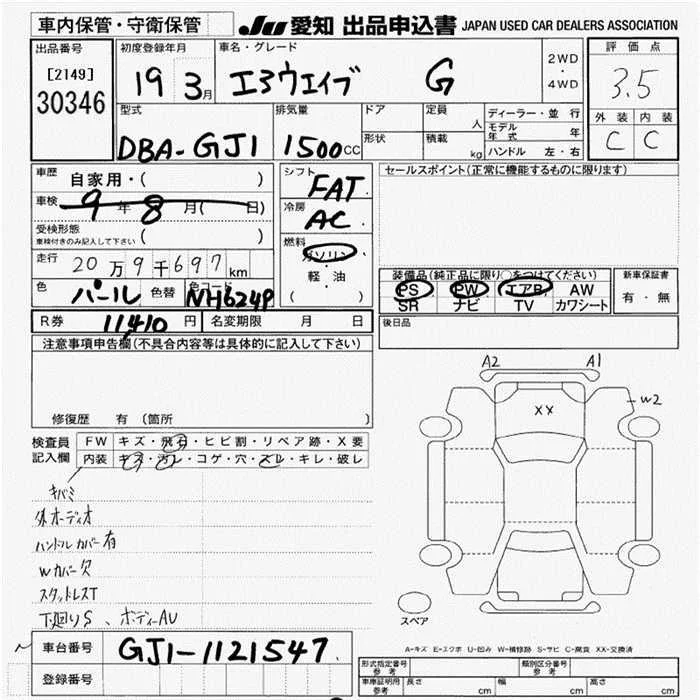 車内保管・守衛保管
JU 愛知 出品申込書 JAPAN USED CAR DEALERS ASSOCIATION
出品番号
[2149]
30346
初度登録年月
19 3月
車名・グレード
エアウェイブ G
2WD
・
4WD
評価点
3.5
外装 内装
C C
型式
DBA-GJ1
排気量
1500cc
ドア
形状
定員
人
積載
kg
ディーラー・並行
モデル年式 年
ハンドル 左・右
車歴
自家用・( )
車検
9年8月( 日)
受検形態
車検付きのみ記入して下さい ( )
走行
20万9千697km
色
パール
色替
色コード
NH624P
シフト
FAT
冷房
AC
燃料
ガソリン
・
軽・油
( )
セールスポイント(正常に機能するものに限ります)
装備品(純正品に限り○をつけてください)
PS PW エアB AW
SR ナビ TV カワシート
新車保証書
有・無
後日品
R券 11410円
名変期限 月 日
注意事項申告欄(不具合内容等は具体的に記入して下さい)
修復歴 有 (箇所
検査員
記入欄
FW キズ・飛石・ヒビ割・リペア跡・X要
内装 キズ・汚レ・コゲ・穴・ズレ・キレ・破レ
キバミ
外オーディオ
ハンドルカバー有
Wカバー欠
スタットレスT
下廻りS、ボディーAU
A2 A1
XX
W2
スペア
A-キズ E-エクボ U-凹み W-補修跡 S-サビ C-腐食 XX-交換済
車台番号
GJ1-1121547
登録番号
形式指定番号
参考
類別区分番号
参考
車庫証明用
参考
長さ cm
幅 cm
高さ cm